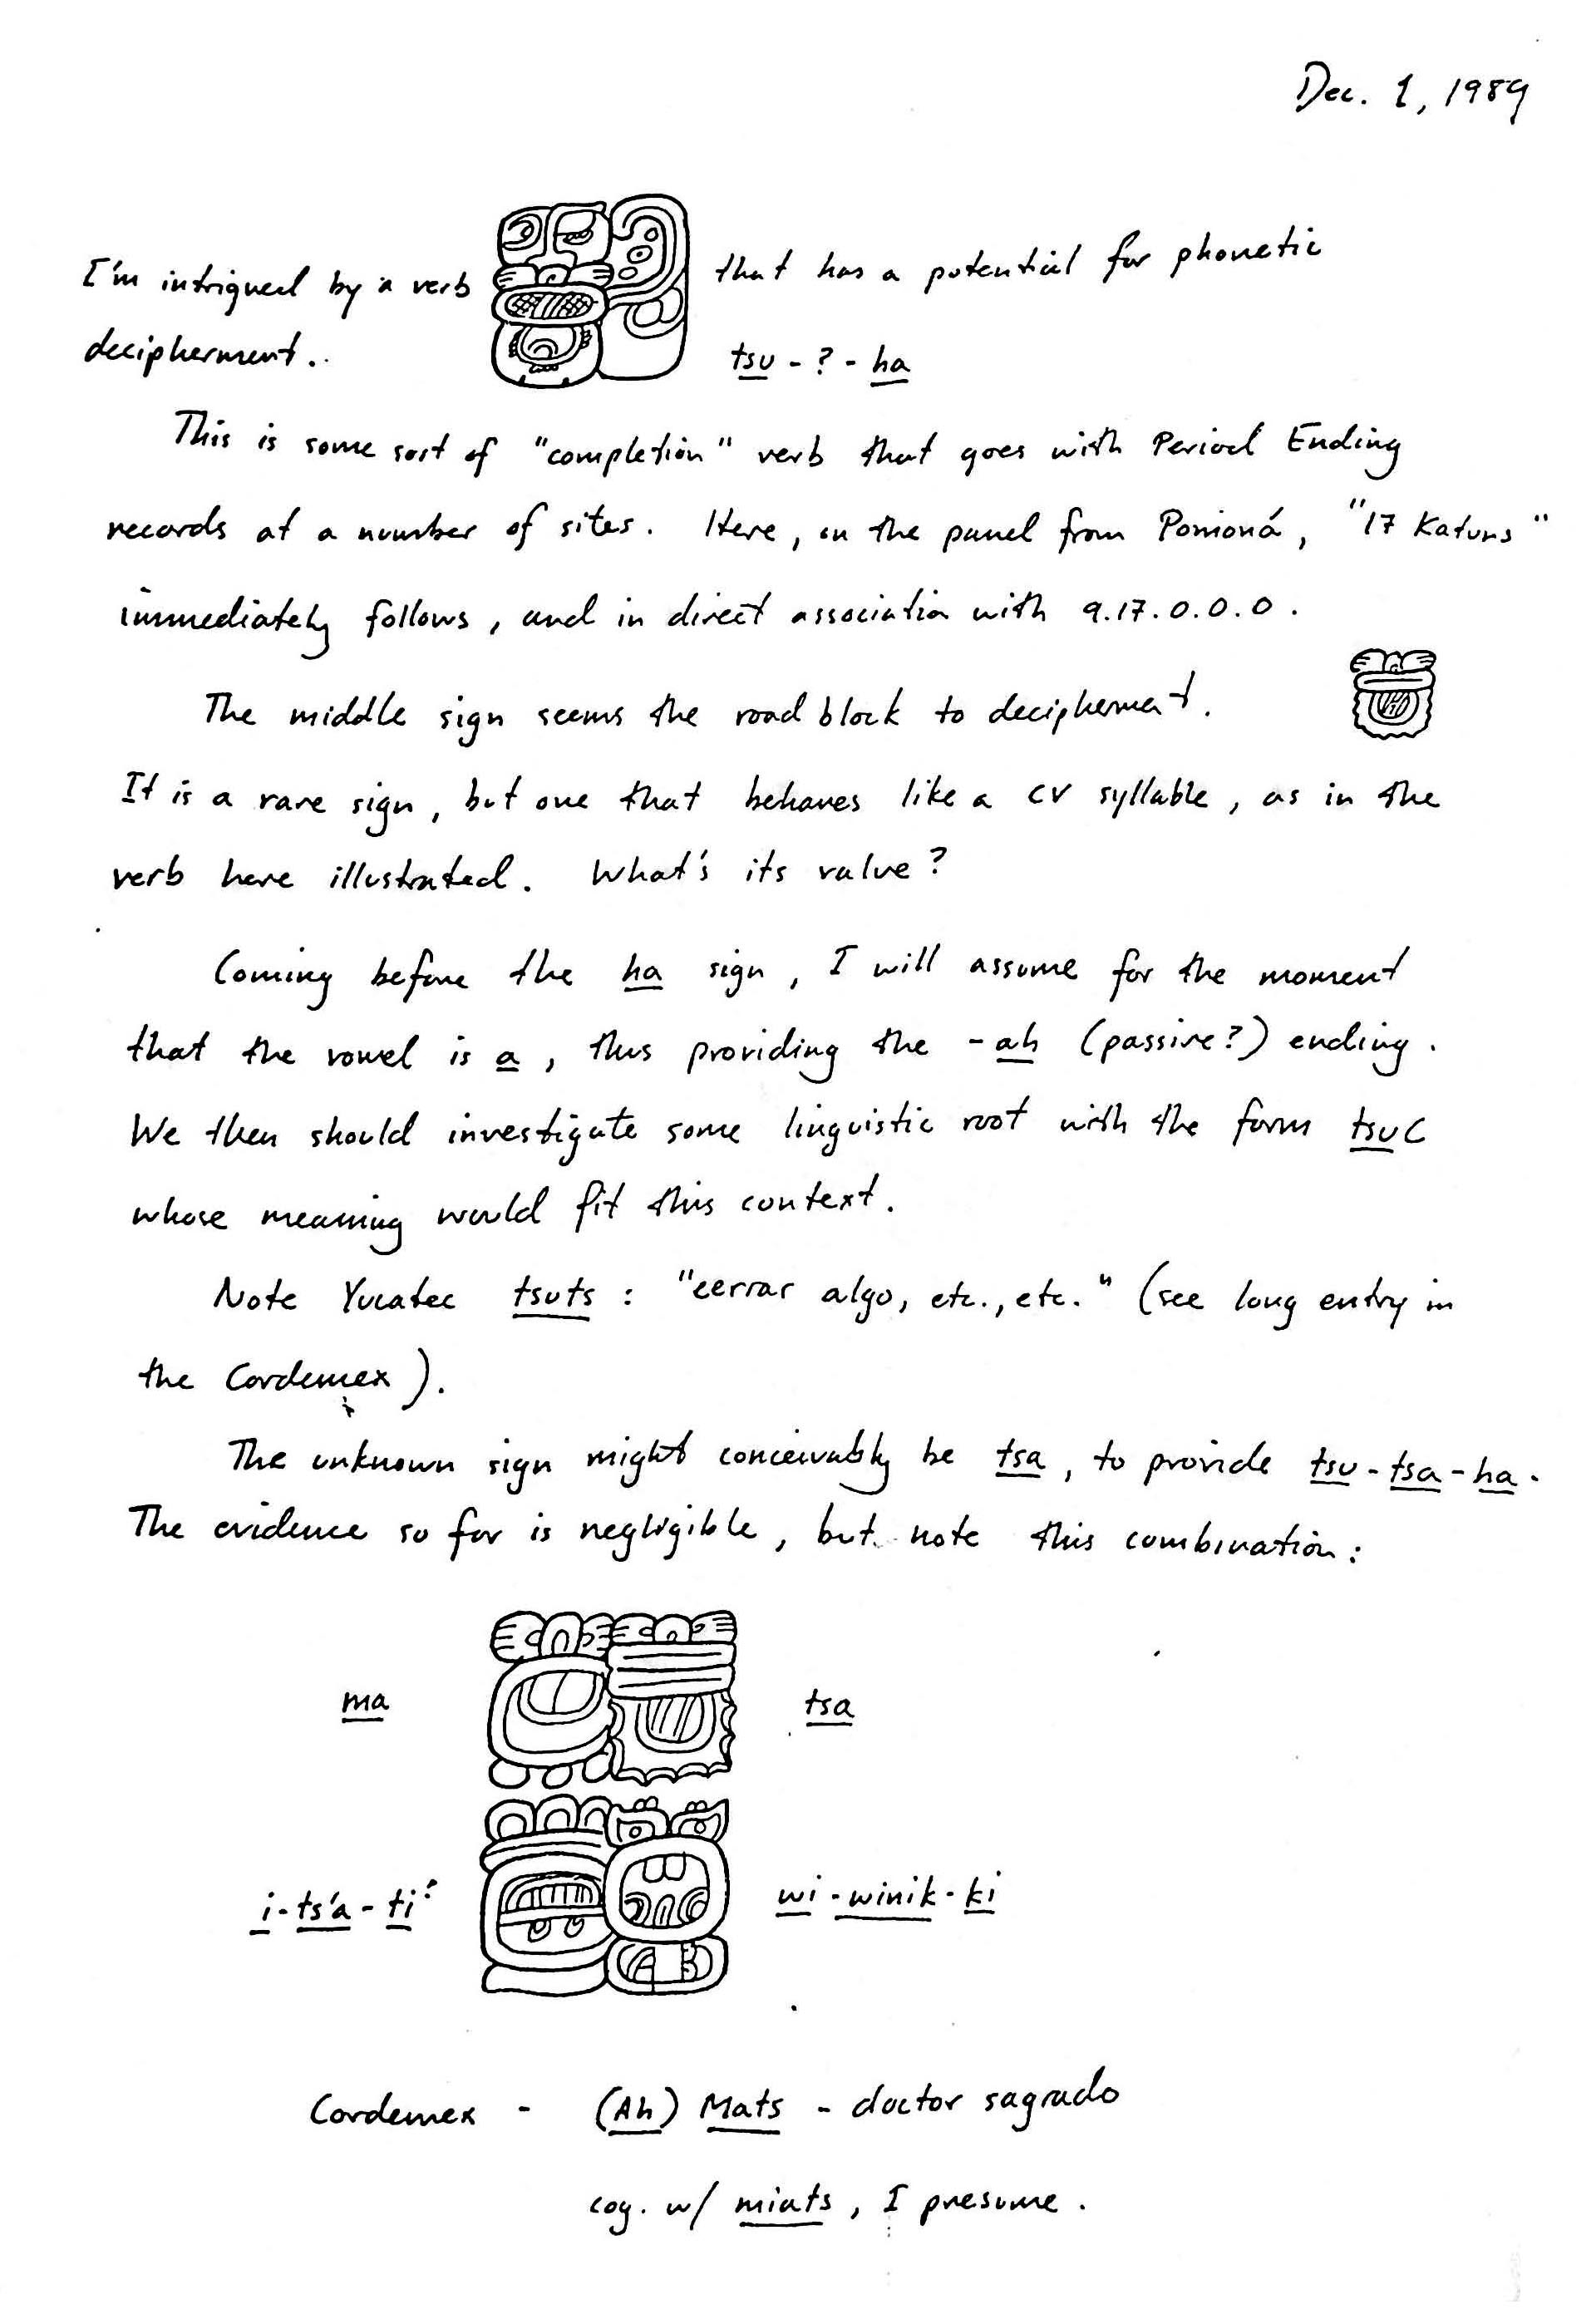 Dec. 1, 1989
I'm intrigued by a verb that has a potential for phonetic
decipherment.. tsu - ? - ha
This is some sort of "completion" verb that goes with Period Ending
records at a number of sites. Here, on the panel from Pomoná, "17 Katuns"
immediately follows, and in direct association with 9.17.0.0.0.
The middle sign seems the road block to decipherment.
It is a rare sign, but one that behaves like a CV syllable, as in the
verb here illustrated. What's its value?
Coming before the ha sign, I will assume for the moment
that the vowel is a, thus providing the -ah (passive?) ending.
We then should investigate some linguistic root with the form tsuC
whose meaning would fit this context.
Note Yucatec tsuts: "cerrar algo, etc., etc." (see long entry in
the Cordemex).
The unknown sign might conceivably be tsa, to provide tsu-tsa-ha.
The evidence so far is negligible, but note this combination:
ma tsa
i-ts'a-ti? wi-winik-ki
Cordemex - (Ah) Mats - doctor sagrado
cog. w/ miats, I presume.